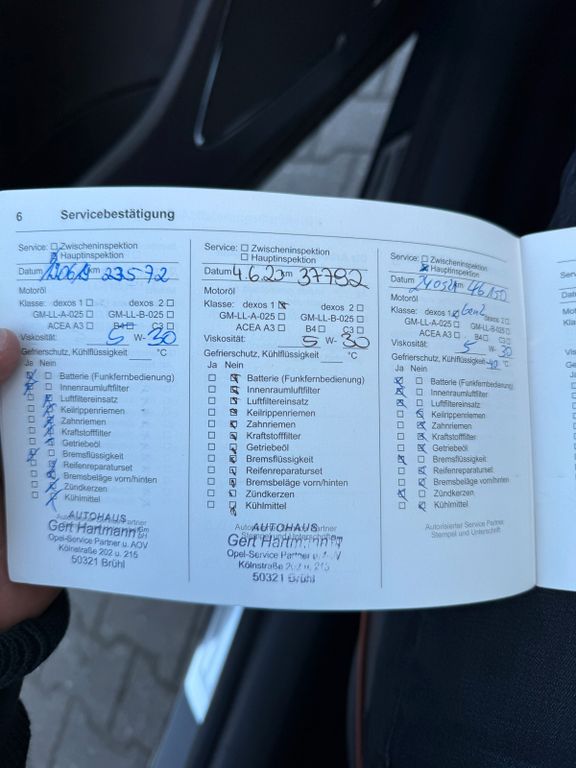 6 Servicebestätigung
Service: Zwischeninspektion
Hauptinspektion
Datum km 23572
Motoröl
Klasse: dexos 1 dexos 2
GM-LL-A-025 GM-LL-B-025
ACEA A3 B4 C3
Viskosität: 5 W- 30
Gefrierschutz, Kühlflüssigkeit °C
Ja Nein
Batterie (Funkfernbedienung)
Innenraumluftfilter
Luftfiltereinsatz
Keilrippenriemen
Zahnriemen
Kraftstofffilter
Getriebeöl
Bremsflüssigkeit
Reifenreparaturset
Bremsbeläge vorn/hinten
Zündkerzen
Kühlmittel
AUTOHAUS
Gert Hartmann
Opel-Service Partner u. AOV
Kölnstraße 202 u. 215
50321 Brühl
Service: Zwischeninspektion
Hauptinspektion
Datum 4.6.23 km 37792
Motoröl
Klasse: dexos 1 dexos 2
GM-LL-A-025 GM-LL-B-025
ACEA A3 B4 C3
Viskosität: 5 W- 30
Gefrierschutz, Kühlflüssigkeit °C
Ja Nein
Batterie (Funkfernbedienung)
Innenraumluftfilter
Luftfiltereinsatz
Keilrippenriemen
Zahnriemen
Kraftstofffilter
Getriebeöl
Bremsflüssigkeit
Reifenreparaturset
Bremsbeläge vorn/hinten
Zündkerzen
Kühlmittel
AUTOHAUS
Gert Hartmann
Opel-Service Partner u. AOV
Kölnstraße 202 u. 215
50321 Brühl
Service: Zwischeninspektion
Hauptinspektion
Datum km 46150
Motoröl
Klasse: dexos 1 dexos 2
GM-LL-A-025 GM-LL-B-025
ACEA A3 B4 C3
Viskosität: 5 W- 30
Gefrierschutz, Kühlflüssigkeit -40 °C
Ja Nein
Batterie (Funkfernbedienung)
Innenraumluftfilter
Luftfiltereinsatz
Keilrippenriemen
Zahnriemen
Kraftstofffilter
Getriebeöl
Bremsflüssigkeit
Reifenreparaturset
Bremsbeläge vorn/hinten
Zündkerzen
Kühlmittel
Autorisierter Service Partner
Stempel und Unterschrift